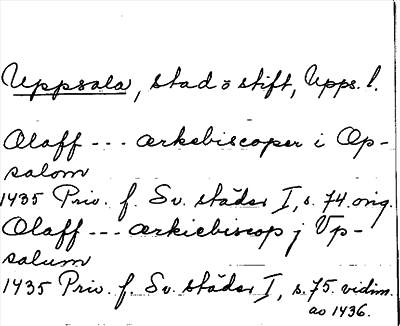 Uppsala, stad o stift, Upps. l.
Olaff --- ærkebiscoper i Op-
salom
1435 Priv. f. Sv. städer I, s. 74 orig.
Olaff --- ærkiebiscop j Vp-
salum
1435 Priv. f. Sv. städer I, s. 75. vidim.
av 1436.